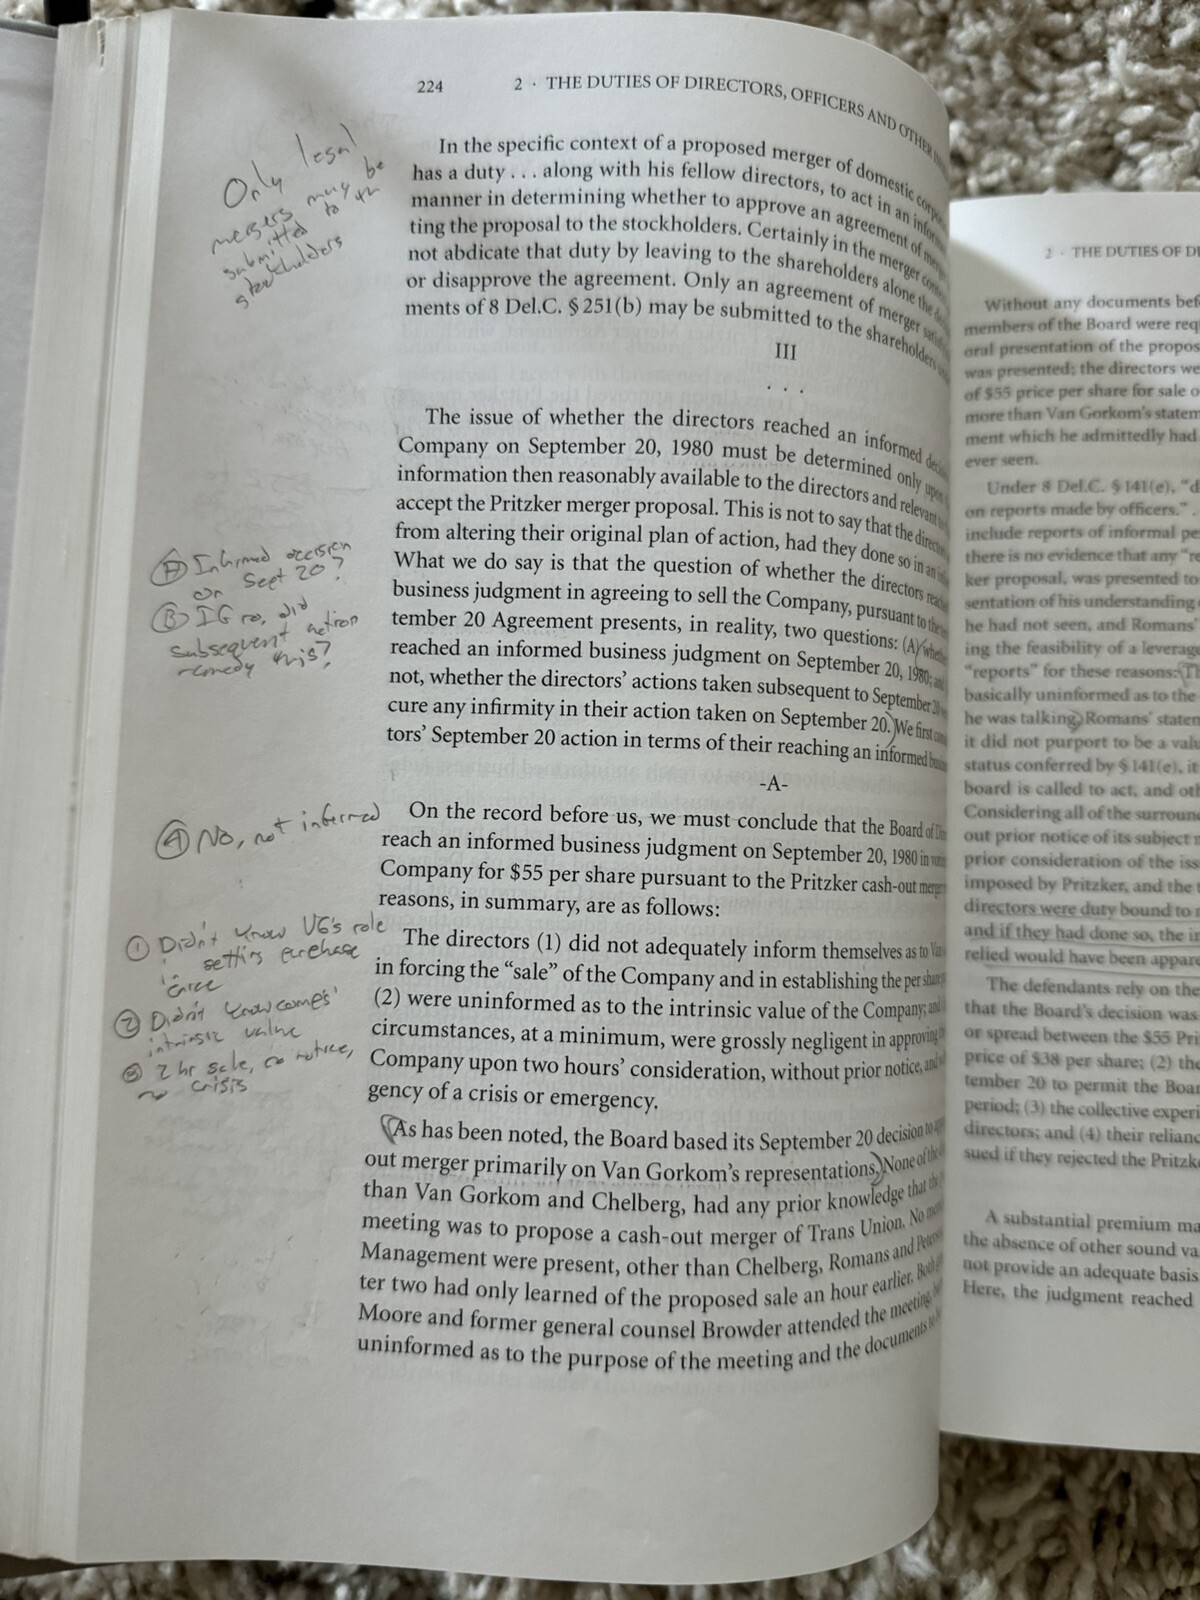 224 2 · THE DUTIES OF DIRECTORS, OFFICERS AND OTHER
In the specific context of a proposed merger of domestic
has a duty . . . along with his fellow directors, to act in an
manner in determining whether to approve an agreement of
ting the proposal to the stockholders. Certainly in the merger
not abdicate that duty by leaving to the shareholders alone the
or disapprove the agreement. Only an agreement of merger
ments of 8 Del.C. § 251(b) may be submitted to the shareholders
III
. . .
The issue of whether the directors reached an informed
Company on September 20, 1980 must be determined only upon
information then reasonably available to the directors and relevant
accept the Pritzker merger proposal. This is not to say that the
from altering their original plan of action, had they done so in an
What we do say is that the question of whether the directors
business judgment in agreeing to sell the Company, pursuant to the
tember 20 Agreement presents, in reality, two questions: (A) whether
reached an informed business judgment on September 20, 1980;
not, whether the directors' actions taken subsequent to September 20
cure any infirmity in their action taken on September 20. We first
tors' September 20 action in terms of their reaching an informed
-A-
On the record before us, we must conclude that the Board of
reach an informed business judgment on September 20, 1980 in
Company for $55 per share pursuant to the Pritzker cash-out
reasons, in summary, are as follows:
The directors (1) did not adequately inform themselves as to
in forcing the “sale” of the Company and in establishing the per
(2) were uninformed as to the intrinsic value of the Company;
circumstances, at a minimum, were grossly negligent in approving
Company upon two hours' consideration, without prior notice,
gency of a crisis or emergency.
As has been noted, the Board based its September 20 decision
out merger primarily on Van Gorkom's representations. None of the
than Van Gorkom and Chelberg, had any prior knowledge that the
meeting was to propose a cash-out merger of Trans Union. No
Management were present, other than Chelberg, Romans and
ter two had only learned of the proposed sale an hour earlier.
Moore and former general counsel Browder attended the meeting,
uninformed as to the purpose of the meeting and the documents
Only legal
mergers may be
submitted to
stockholders
(A) Informed decision
on Sept 20?
(B) If no, did
subsequent action
remedy this?
(A) No, not informed
(1) Didn't know VG's role
in setting purchase
price
(2) Didn't know
intrinsic value
(3) 2 hr sale, no notice,
no crisis
2 · THE DUTIES OF
Without any documents
members of the Board were
oral presentation of the
was presented; the directors
of $55 price per share for sale
more than Van Gorkom's
ment which he admittedly had
ever seen.
Under 8 Del.C. § 141(e),
on reports made by officers.”
include reports of informal
there is no evidence that any
ker proposal, was presented to
sentation of his understanding
he had not seen, and Romans'
ing the feasibility of a
“reports” for these reasons:
basically uninformed as to the
he was talking; Romans'
it did not purport to be a
status conferred by § 141(e), it
board is called to act, and
Considering all of the
out prior notice of its subject
prior consideration of the
imposed by Pritzker, and the
directors were duty bound to
and if they had done so, the
relied would have been
The defendants rely on the
that the Board's decision was
or spread between the $55
price of $38 per share; (2) the
tember 20 to permit the
period; (3) the collective
directors; and (4) their
sued if they rejected the
A substantial premium
the absence of other sound
not provide an adequate basis
Here, the judgment reached